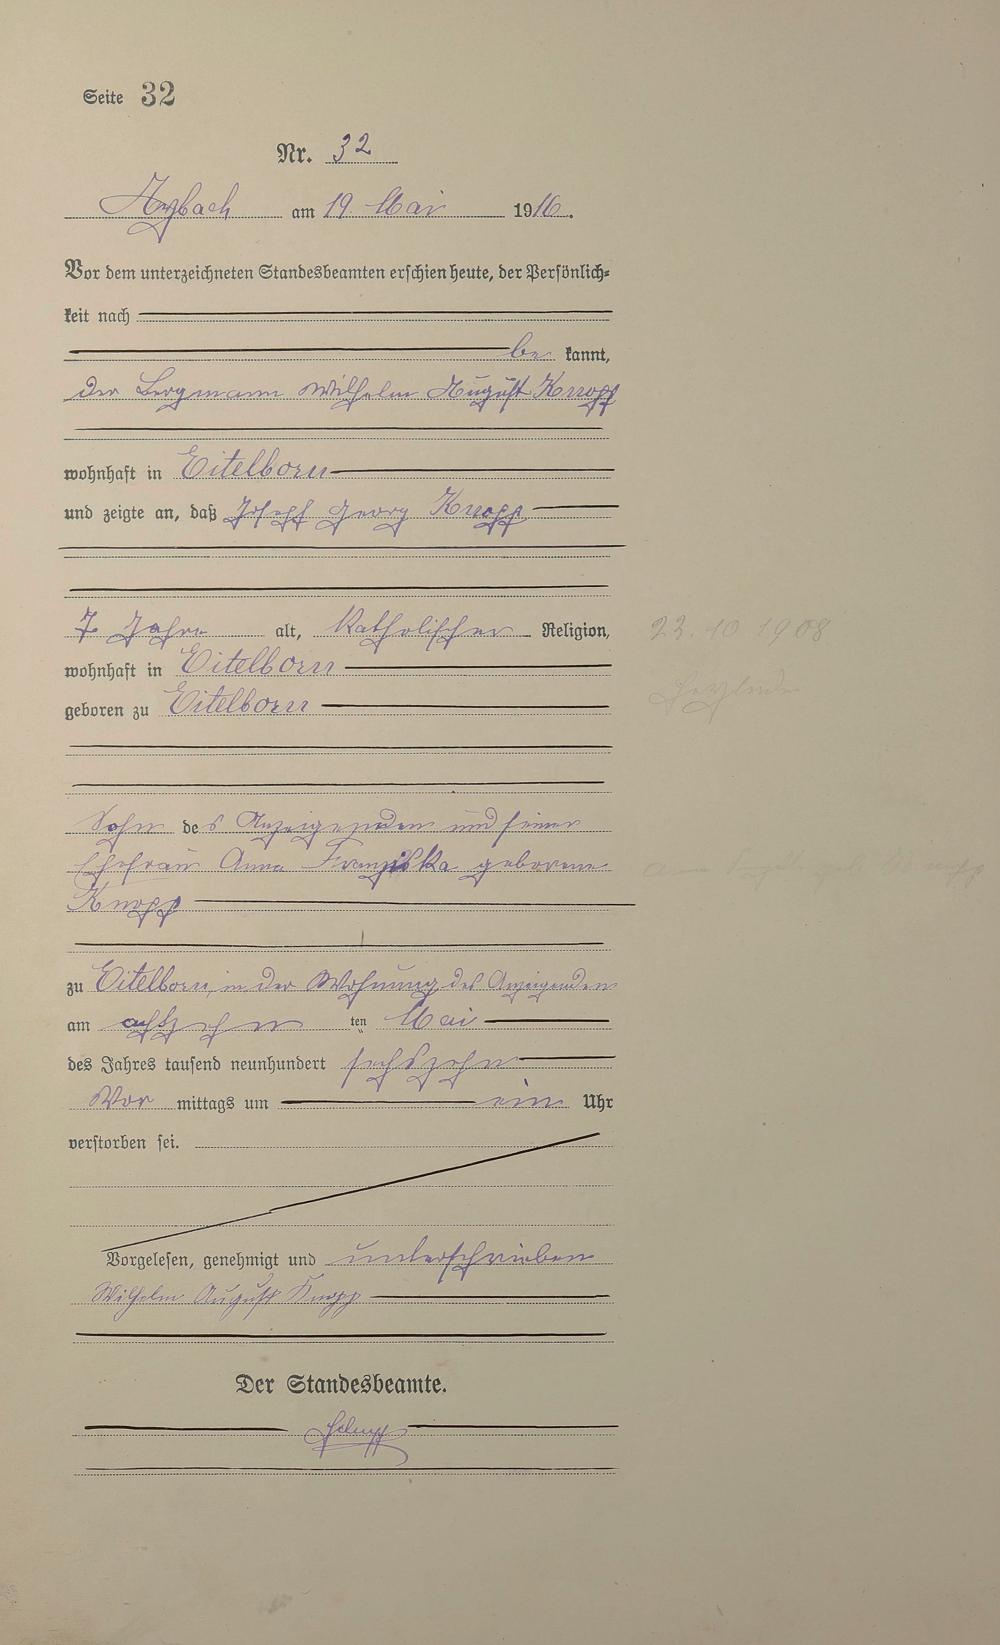 Seite 32
Nr. 32
Arzbach am 19. Mai 1916.
Vor dem unterzeichneten Standesbeamten erschien heute, der Persönlich=
keit nach
be kannt,
der Bergmann Wilhelm August Knopp
wohnhaft in Eitelborn
und zeigte an, daß Joseph Georg Knopp
7 Jahre alt, katholischer Religion,
wohnhaft in Eitelborn
geboren zu Eitelborn
Sohn des Anzeigenden und seiner
Ehefrau Anna Franziska geborene
Knopp
zu Eitelborn, in der Wohnung des Anzeigenden
am achtzehn ten Mai
des Jahres tausend neunhundert sechszehn
Vor mittags um ein Uhr
verstorben sei.
Vorgelesen, genehmigt und unterschrieben
Wilhelm August Knopp
Der Standesbeamte.
22.10.1908